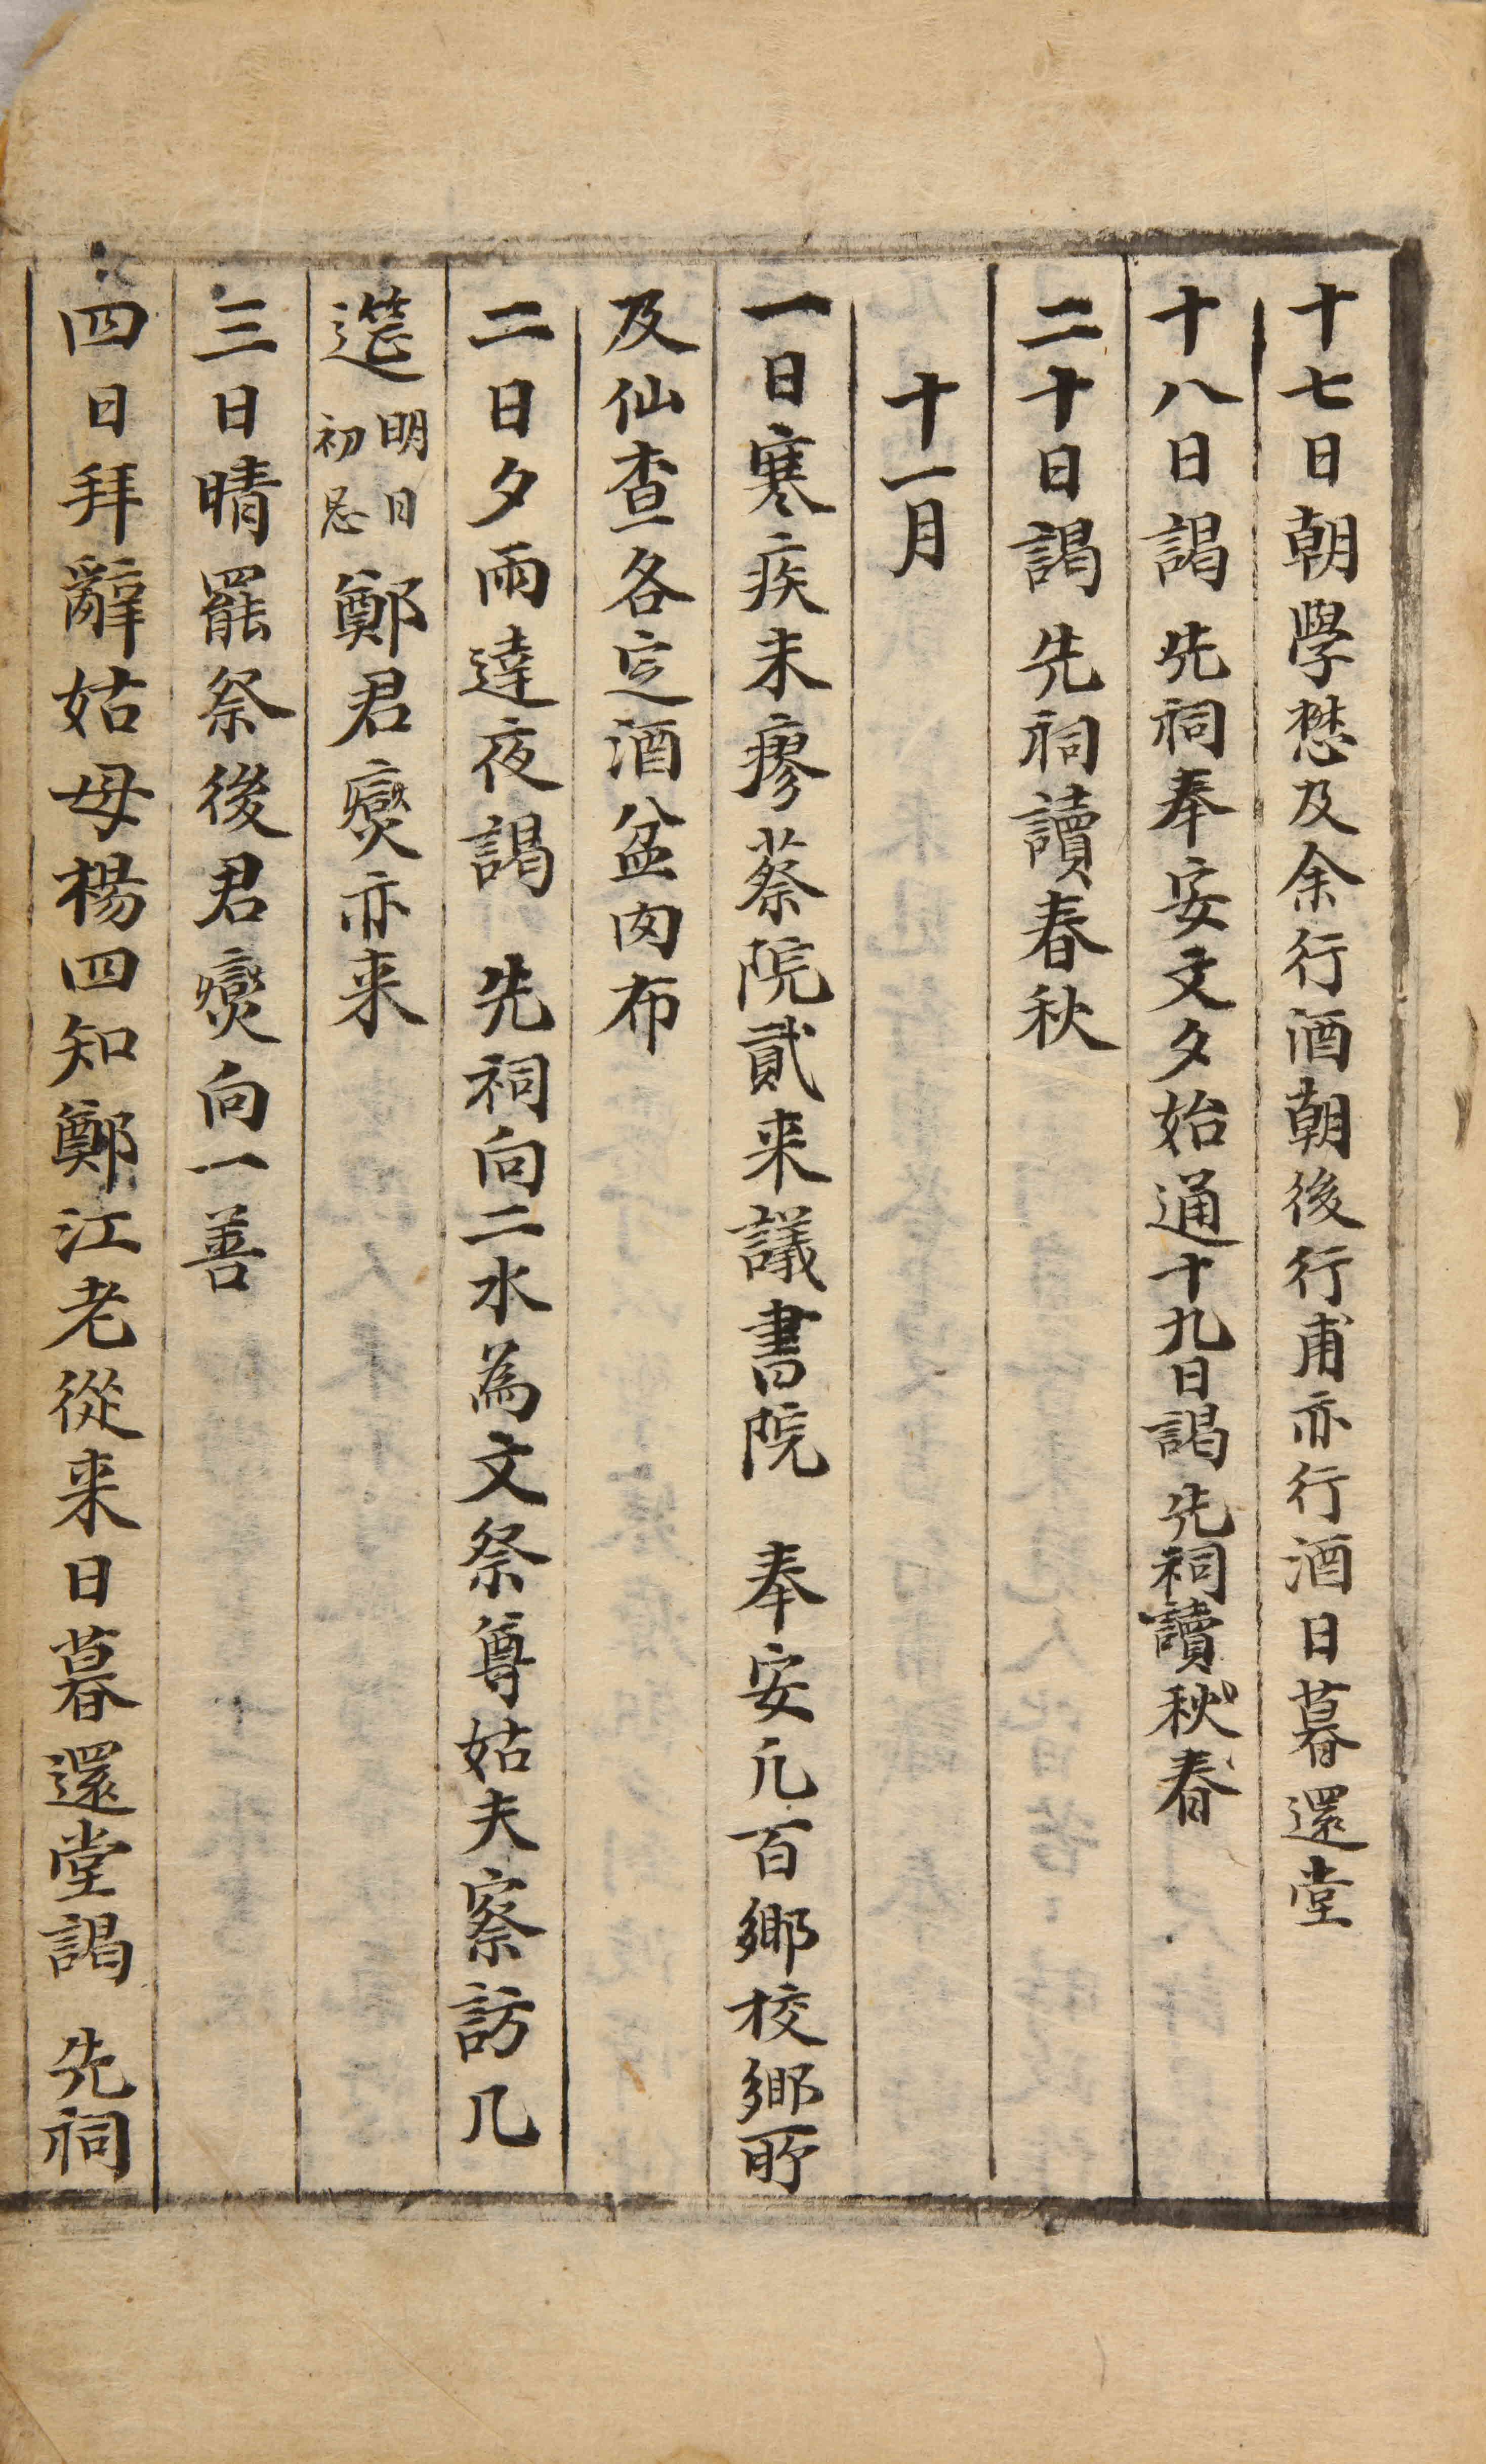 十七日朝學懋及余行酒朝後行甫亦行酒日暮還堂
十八日謁 先祠奉安文夕始通十九日謁 先祠讀秋春
二十日謁 先祠讀春秋
十一月
一日寒疾未瘳蔡院貳来議書院 奉安凢百鄉校鄉所
及仙查各定酒盆囱布
二日夕雨達夜謁 先祠向二水為文祭尊姑夫察訪几
筵明日初忌鄭君燮亦来
三日晴罷祭後君燮向一善
四日拜辭姑母楊四知鄭江老從来日暮還堂謁 先祠